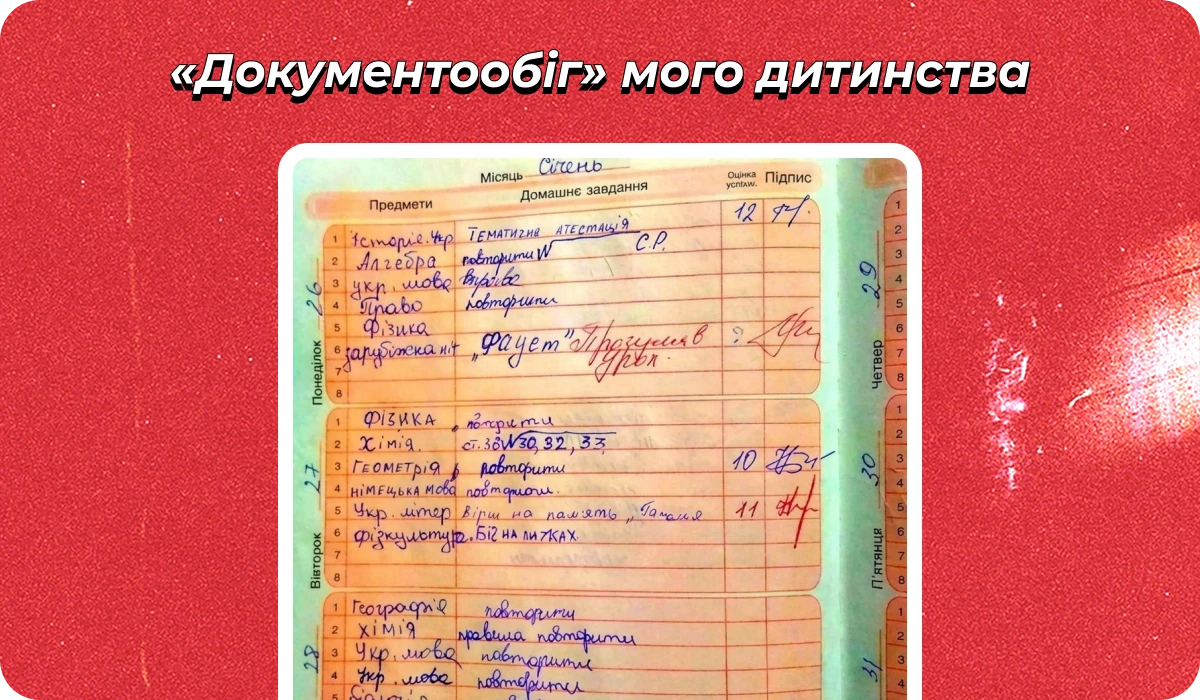 «Документообіг» мого дитинства
Місяць Січень
Предмети Домашнє завдання Оцінка успішн. Підпис
Понеділок 26
1 Історія. Укр Тематична атестація 12
2 Алгебра повторити С.Р.
3 укр. мова
4 Право повторити
5 Фізика
6 зарубіжна літ „Фауст" Прогуляв ?
урок.
7
8
Вівторок 27
1 Фізика повторити
2 Хімія. ст. 38 №30, 32, 33
3 Геометрія повторити 10
4 німецька мова повторити.
5 Укр. літер вірш на пам'ять 11
6 фізкультура. БІГ НА
7
8
28
1 Географія повторити
2 хімія правила повторити
3 Укр. мова повторити
4 Укр. мова повторити
5
Четвер 29
1
2
3
4
5
6
7
8
П'ятниця 30
1
2
3
4
5
6
7
8
31
1
2
3
4